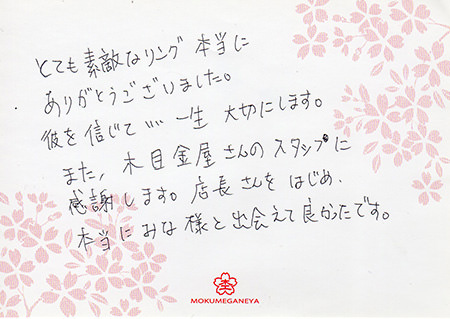 とても素敵なリング本当に
ありがとうございました。
彼を信じて…一生大切にします。
また,木目金屋さんのスタッフに
感謝します。店長さんをはじめ、
本当にみな様と出会えて良かったです。
MOKUMEGANEYA